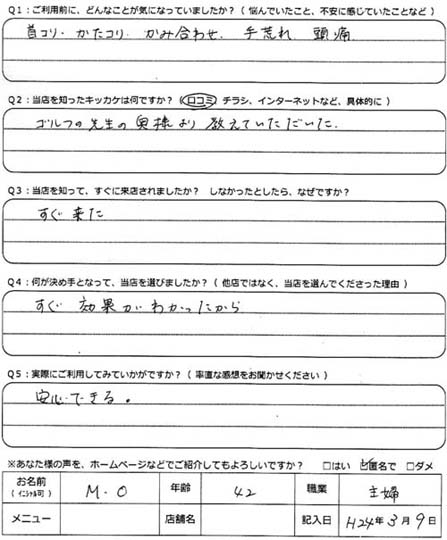 Q1:ご利用前に、どんなことが気になっていましたか?(悩んでいたこと、不安に感じていたことなど)
首コリ・かたコリ・かみ合わせ、手荒れ、頭痛
Q2:当店を知ったキッカケは何ですか?(口コミ チラシ、インターネットなど、具体的に)
ゴルフの先生の奥様より教えていただいた.
Q3:当店を知って、すぐに来店されましたか? しなかったとしたら、なぜですか?
すぐ来た
Q4:何が決め手となって、当店を選びましたか?(他店ではなく、当店を選んでくださった理由)
すぐ効果がわかったから
Q5:実際にご利用してみていかがですか?(率直な感想をお聞かせください)
安心できる。
※あなた様の声を、ホームページなどでご紹介してもよろしいですか? □はい ☑匿名で □ダメ
お名前 (イニシャル可) M・O 年齢 42 職業 主婦
メニュー 店舗名 記入日 H24年3月9日